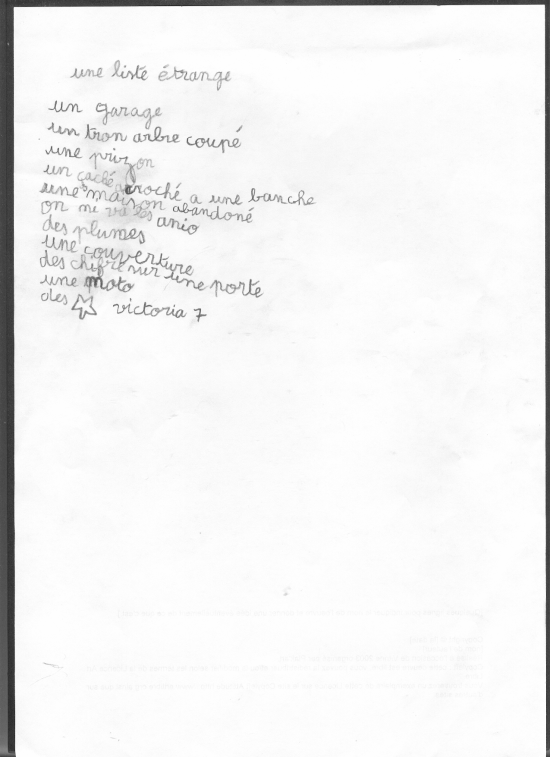 une liste étrange
un garage
un tron arbre coupé
une prizon
un caché acroché a une banche
une maison abandoné
on ni va les anio
des plumes
une couverture
des chifre sur une porte
une moto
des victoria 7